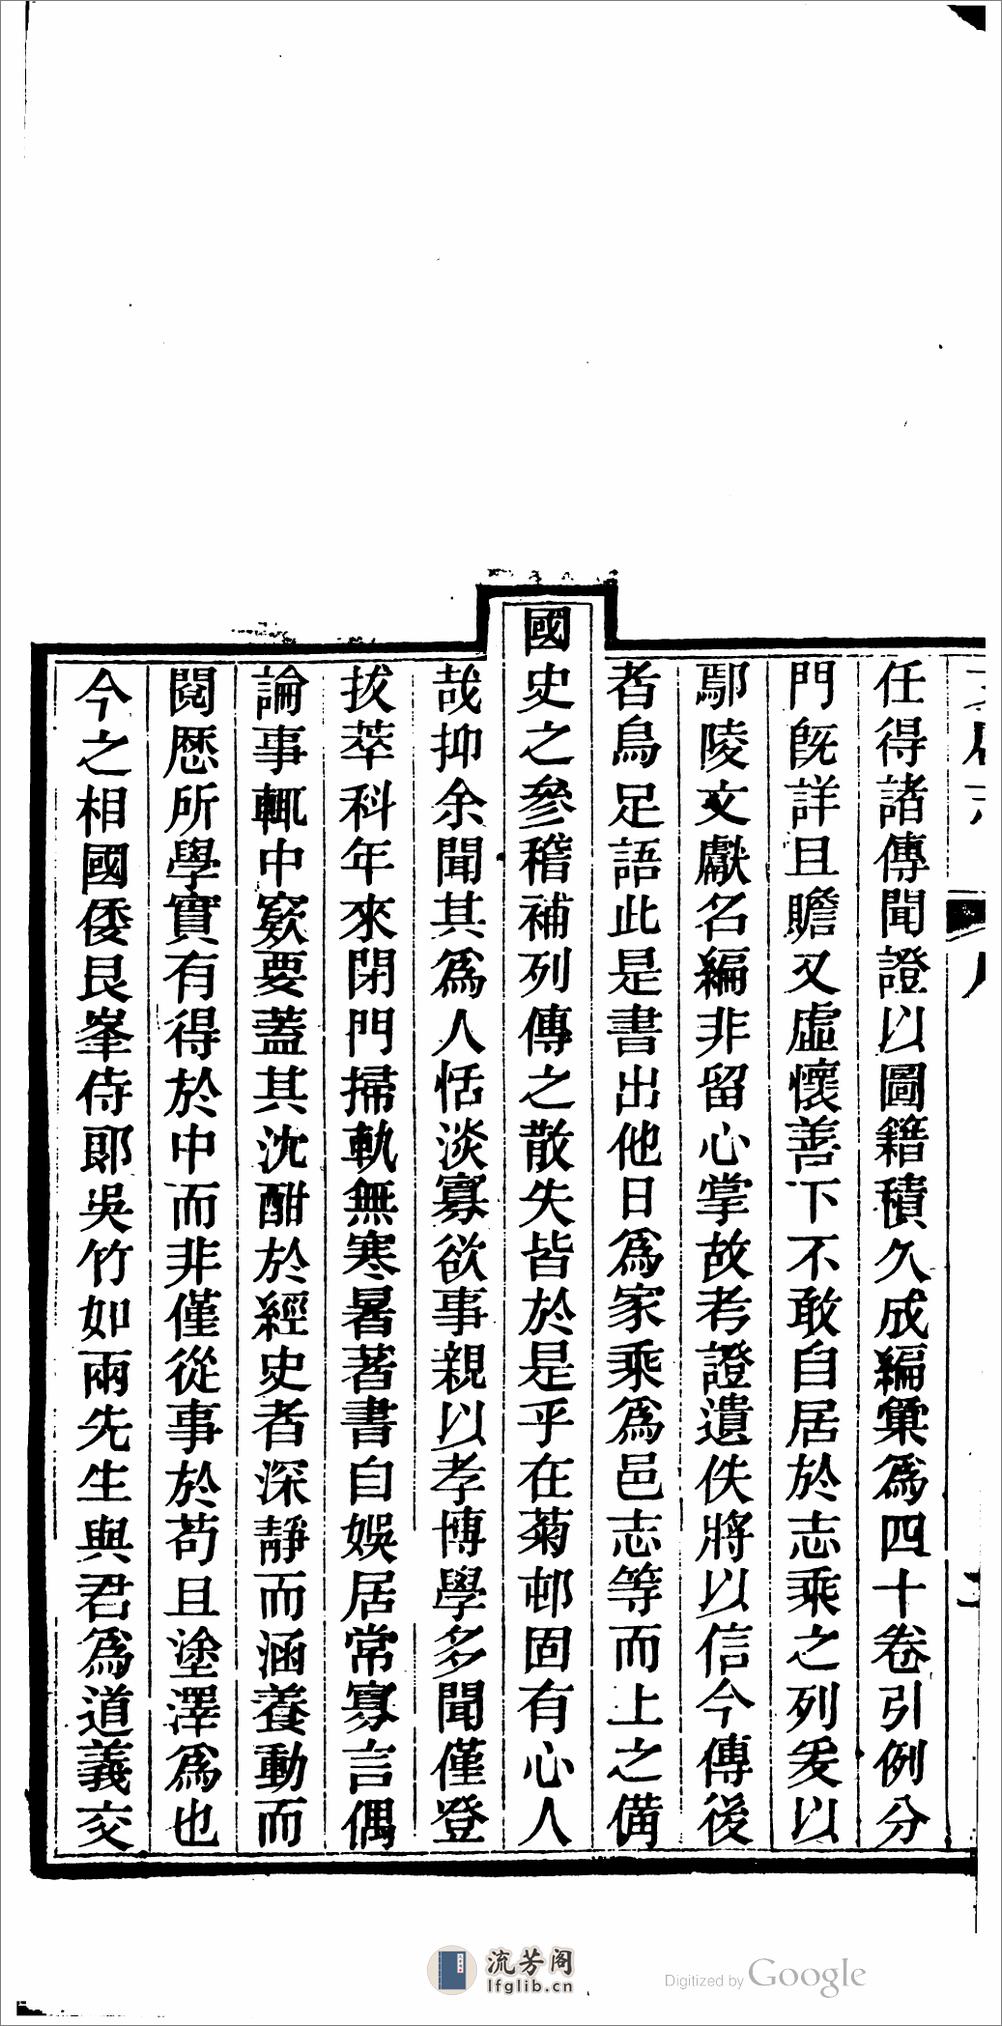 任得諸傳聞證以圖籍積久成編彙爲四十卷引例分
門旣詳且贍又虛懷善下不敢自居於志乘之列爰以
鄢陵文獻名編非留心掌故考證遺佚將以信今傳後
者烏足語此是書出他日爲家乘爲邑志等而上之備
國史之參稽補列傳之散失皆於是乎在菊邨固有心人
哉抑余聞其爲人恬淡寡欲事親以孝博學多聞僅登
拔萃科年來閉門掃軌無寒暑著書自娛居常寡言偶
論事輒中窾要蓋其沈酣於經史者深靜而涵養動而
閱歷所學實有得於中而非僅從事於苟且塗澤爲也
今之相國倭艮峯侍郎吳竹如兩先生與君爲道義交
流芳阁
lfglib.cn
Digitized by Google